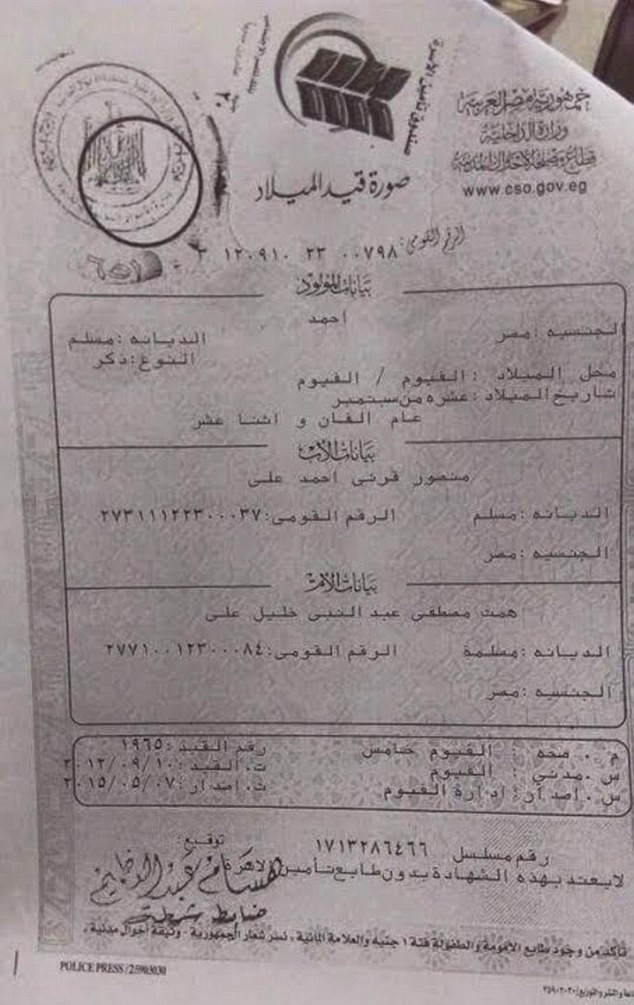 صندوق تأمين الأسرة
جمهورية مصر العربية
وزارة الداخلية
قطاع مصلحة الأحوال المدنية
www.cso.gov.eg
صورة قيد الميلاد
الرقم القومى: ٣ ١٢٠٩١٠ ٢٣ ٠٠٧٩٨
بيانات المولود
احمد
الجنسيه : مصر الديانه : مسلم
النوع : ذكر
محل الميلاد : الفيوم / الفيوم
تاريخ الميلاد : عشره من سبتمبر
عام الفان و اثنا عشر
بيانات الأب
منصور قرنى احمد على
الديانه : مسلم الرقم القومى: ٢٧٣١١١٢٢٣٠٠٠٣٧
الجنسيه : مصر
بيانات الأم
همت مصطفى عبد النبى خليل على
الديانه : مسلمة الرقم القومى: ٢٧٧١٠٠١٢٣٠٠٠٨٤
الجنسيه : مصر
م . صحه : الفيوم خامس رقم القيد : ١٩٦٥
س . مدني : الفيوم ت . القيد : ٢٠١٢/٠٩/١٠
س . اصدار : ادارة الفيوم ت . اصدار : ٢٠١٥/٠٥/٠٧
رقم مسلسل ١٧١٣٢٨٦٤٦٦ توقيع :
لا يعتد بهذه الشهادة بدون طابع تأمين الاسرة
ضابط شرطة
تأكد من وجود طابع الأمومة والطفولة فئة ١ جنيه والعلامة المائية ، نسر شعار الجمهورية - وثيقة أحوال مدنية .
POLICE PRESS / 25903030